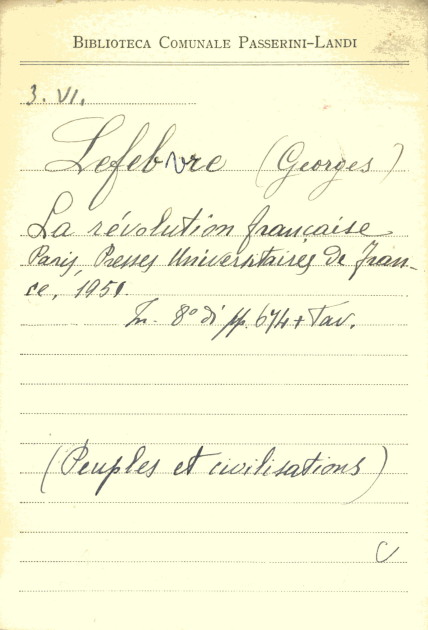 BIBLIOTECA COMUNALE PASSERINI-LANDI
3. VI.
Lefebvre (Georges)
La révolution française
Paris, Presses Universitaires de Fran-
ce, 1951.
In- 8° di pp. 674 + Tav.
(Peuples et civilisations)
C